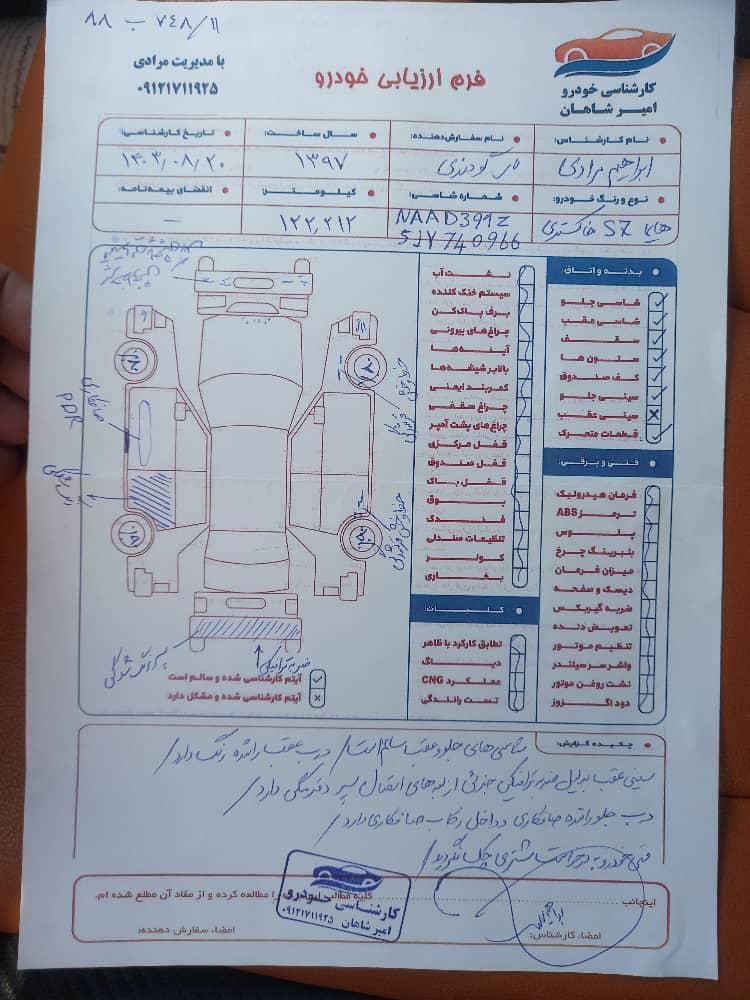 ۸۸ ب ۷۴۸/۱۱
با مدیریت مرادی
۰۹۱۲۱۷۱۱۹۲۵
فرم ارزیابی خودرو
کارشناسی خودرو
امیر شاهان
نام کارشناس:
ابراهیم مرادی
نام سفارش‌دهنده:
سال ساخت:
۱۳۹۷
تاریخ کارشناسی:
۱۴۰۳/۰۸/۲۰
نوع و رنگ خودرو:
سایپا SZ خاکستری
شماره شاسی:
NAAD391Z
5JY740966
کیلومتر:
۱۲۲,۲۱۲
انقضای بیمه‌نامه:
-
بدنه و اتاق:
شاسی جلو
شاسی عقب
سقف
ستون ها
کف صندوق
سینی جلو
سینی عقب
قطعات متحرک
فنی و برقی:
فرمان هیدرولیک
ترمز ABS
پلوس
بلبرینگ چرخ
میزان فرمان
دیسک و صفحه
ضربه گیربکس
تعویض دنده
تنظیم موتور
واشر سر سیلندر
نشت روغن موتور
دود اگزوز
نشت آب
سیستم خنک کننده
برف پاک‌کن
چراغ‌های بیرونی
آینه‌ها
بالابر شیشه‌ها
کمربند ایمنی
چراغ سقفی
چراغ‌های پشت آمپر
قفل مرکزی
قفل صندوق
قفل باک
بوق
فندک
تنظیمات صندلی
کولر
بخاری
کلیات:
تطابق کارکرد با ظاهر
دیاگ
عملکرد CNG
تست رانندگی
صافکاری
PDR
ضربه ترافیکی
آیتم کارشناسی شده و سالم است
آیتم کارشناسی شده و مشکل دارد
چکیده گزارش:
شاسی‌های جلو و عقب سالم است/ درب عقب راننده رنگ دارد/
سینی عقب بدلیل ضربه ترافیکی جزئی از لبه‌های اتصال سپر دفرمگی دارد/
درب جلو راننده صافکاری و داخل رکاب صافکاری دارد/
فنی خودرو به درخواست مشتری چک نگردید/
اینجانب
کلیه مطالب
را مطالعه کرده و از مفاد آن مطلع شده ام.
امضاء کارشناس:
امضاء سفارش دهنده:
کارشناسی خودرو
امیر شاهان ۰۹۱۲۱۷۱۱۹۲۵